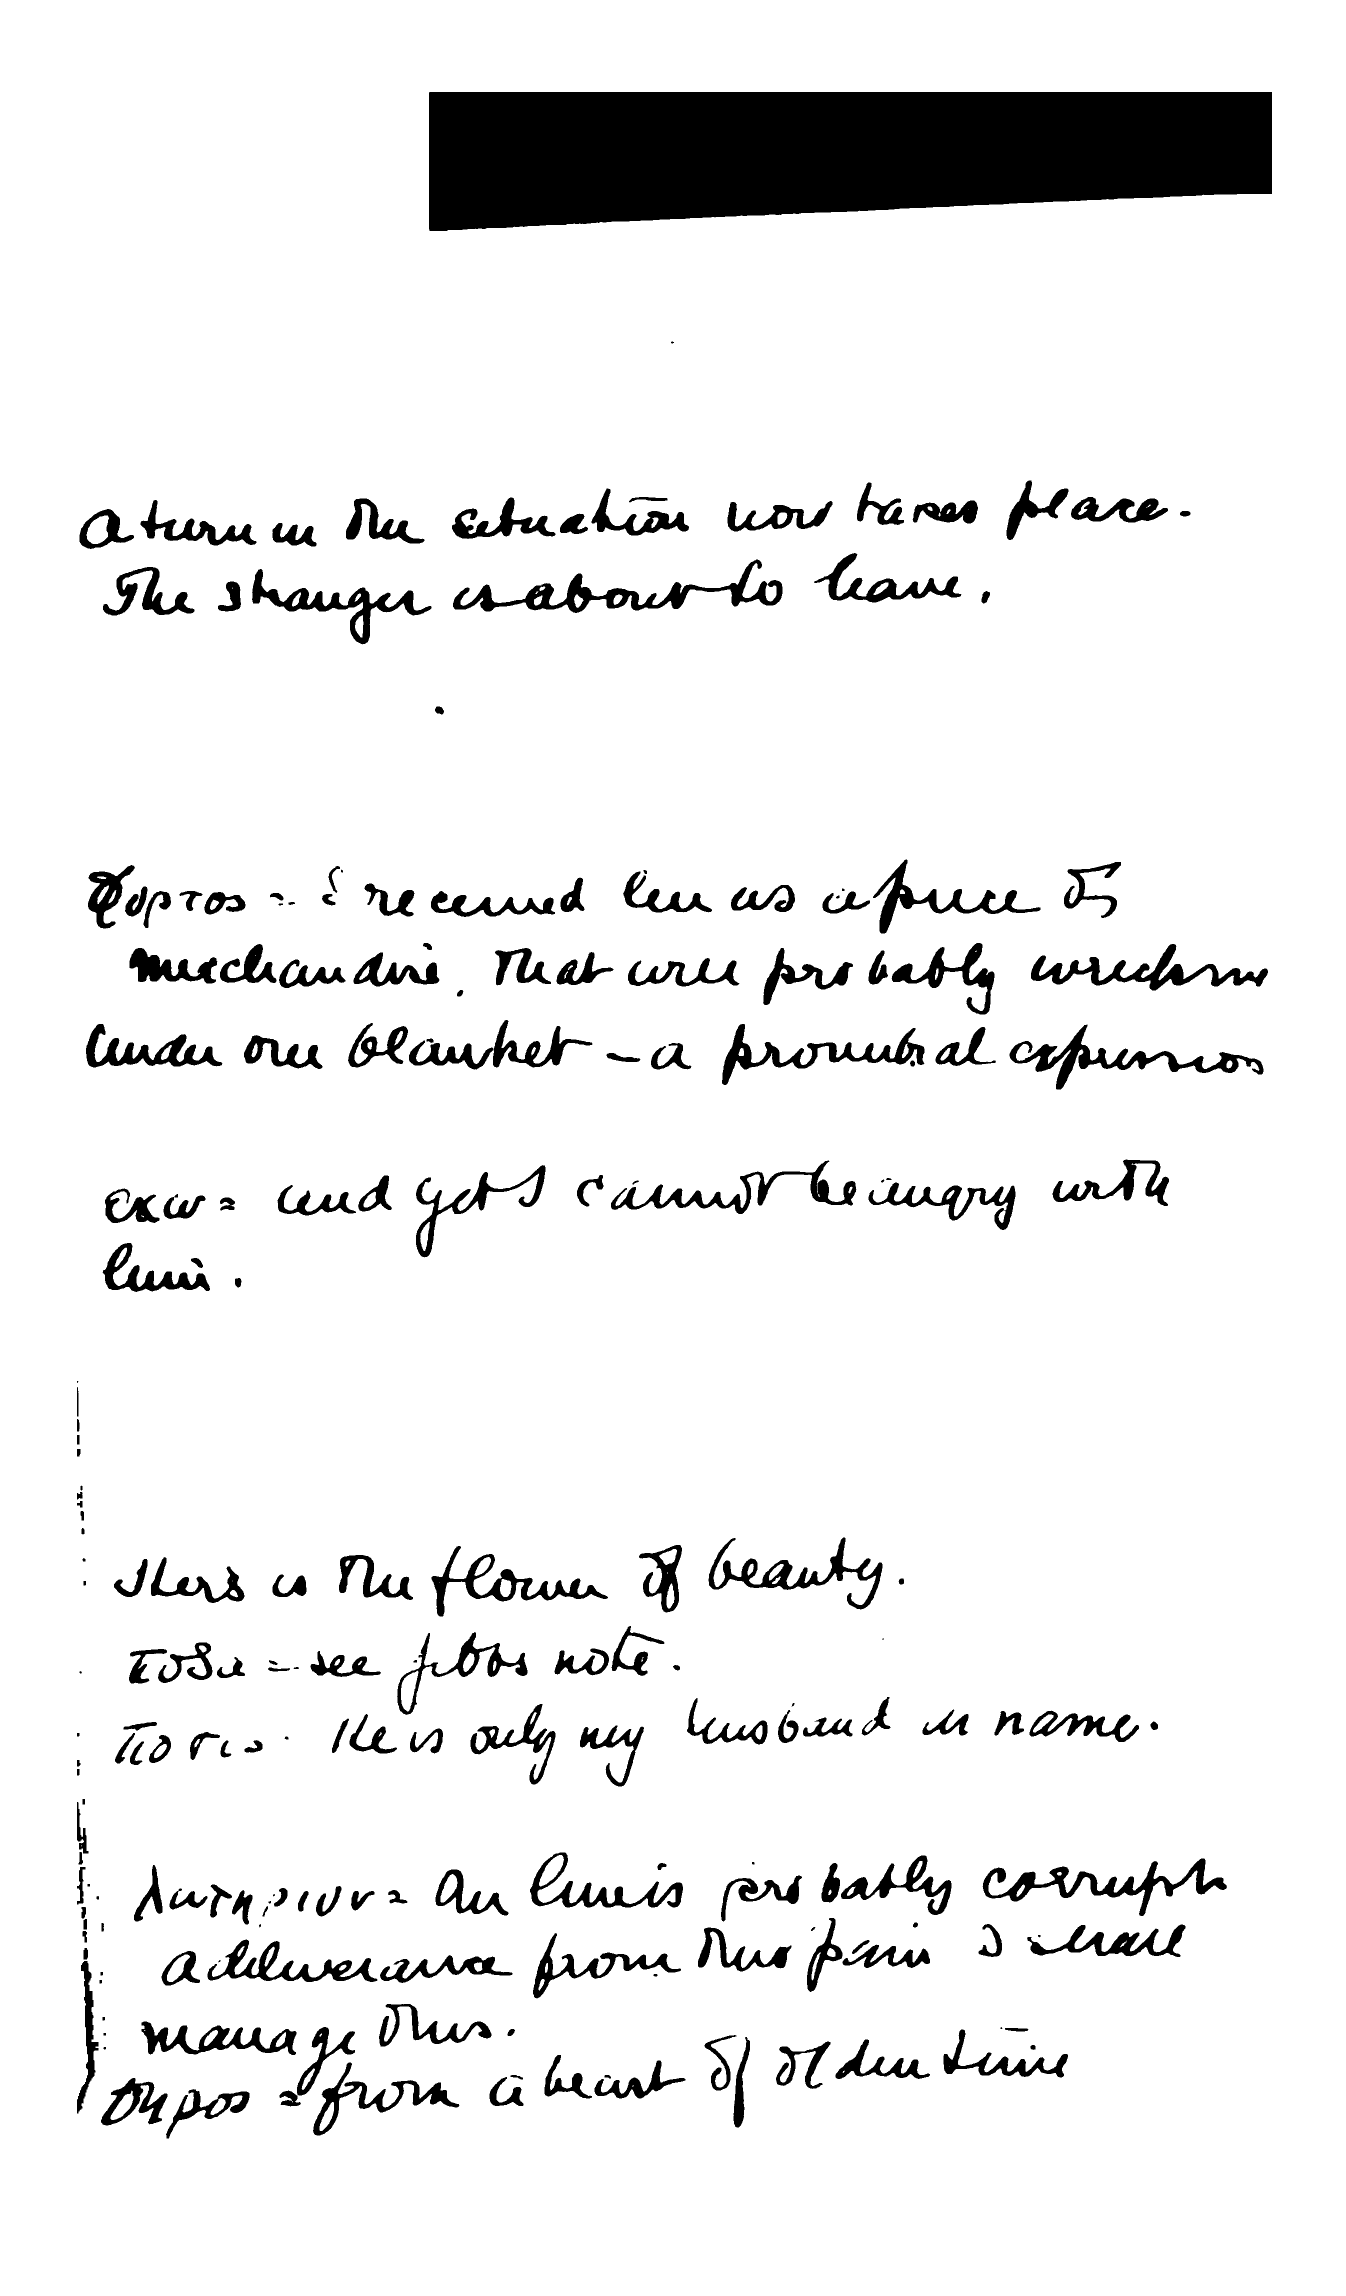 A turn in the situation now takes place.
The stranger is about to leave.
Φορτος = I received her as a piece of
merchandise. That will probably wreck me
Under one blanket – a proverbial expression
εχω = and yet I cannot be angry with
him.
Hers is the flower of beauty.
ποδα = see Jebbs note.
ποσις He is only my husband in name.
λυτηριον = The line is probably corrupt
A deliverance from this pain I shall
manage this.
θηρος = from a beast of olden time